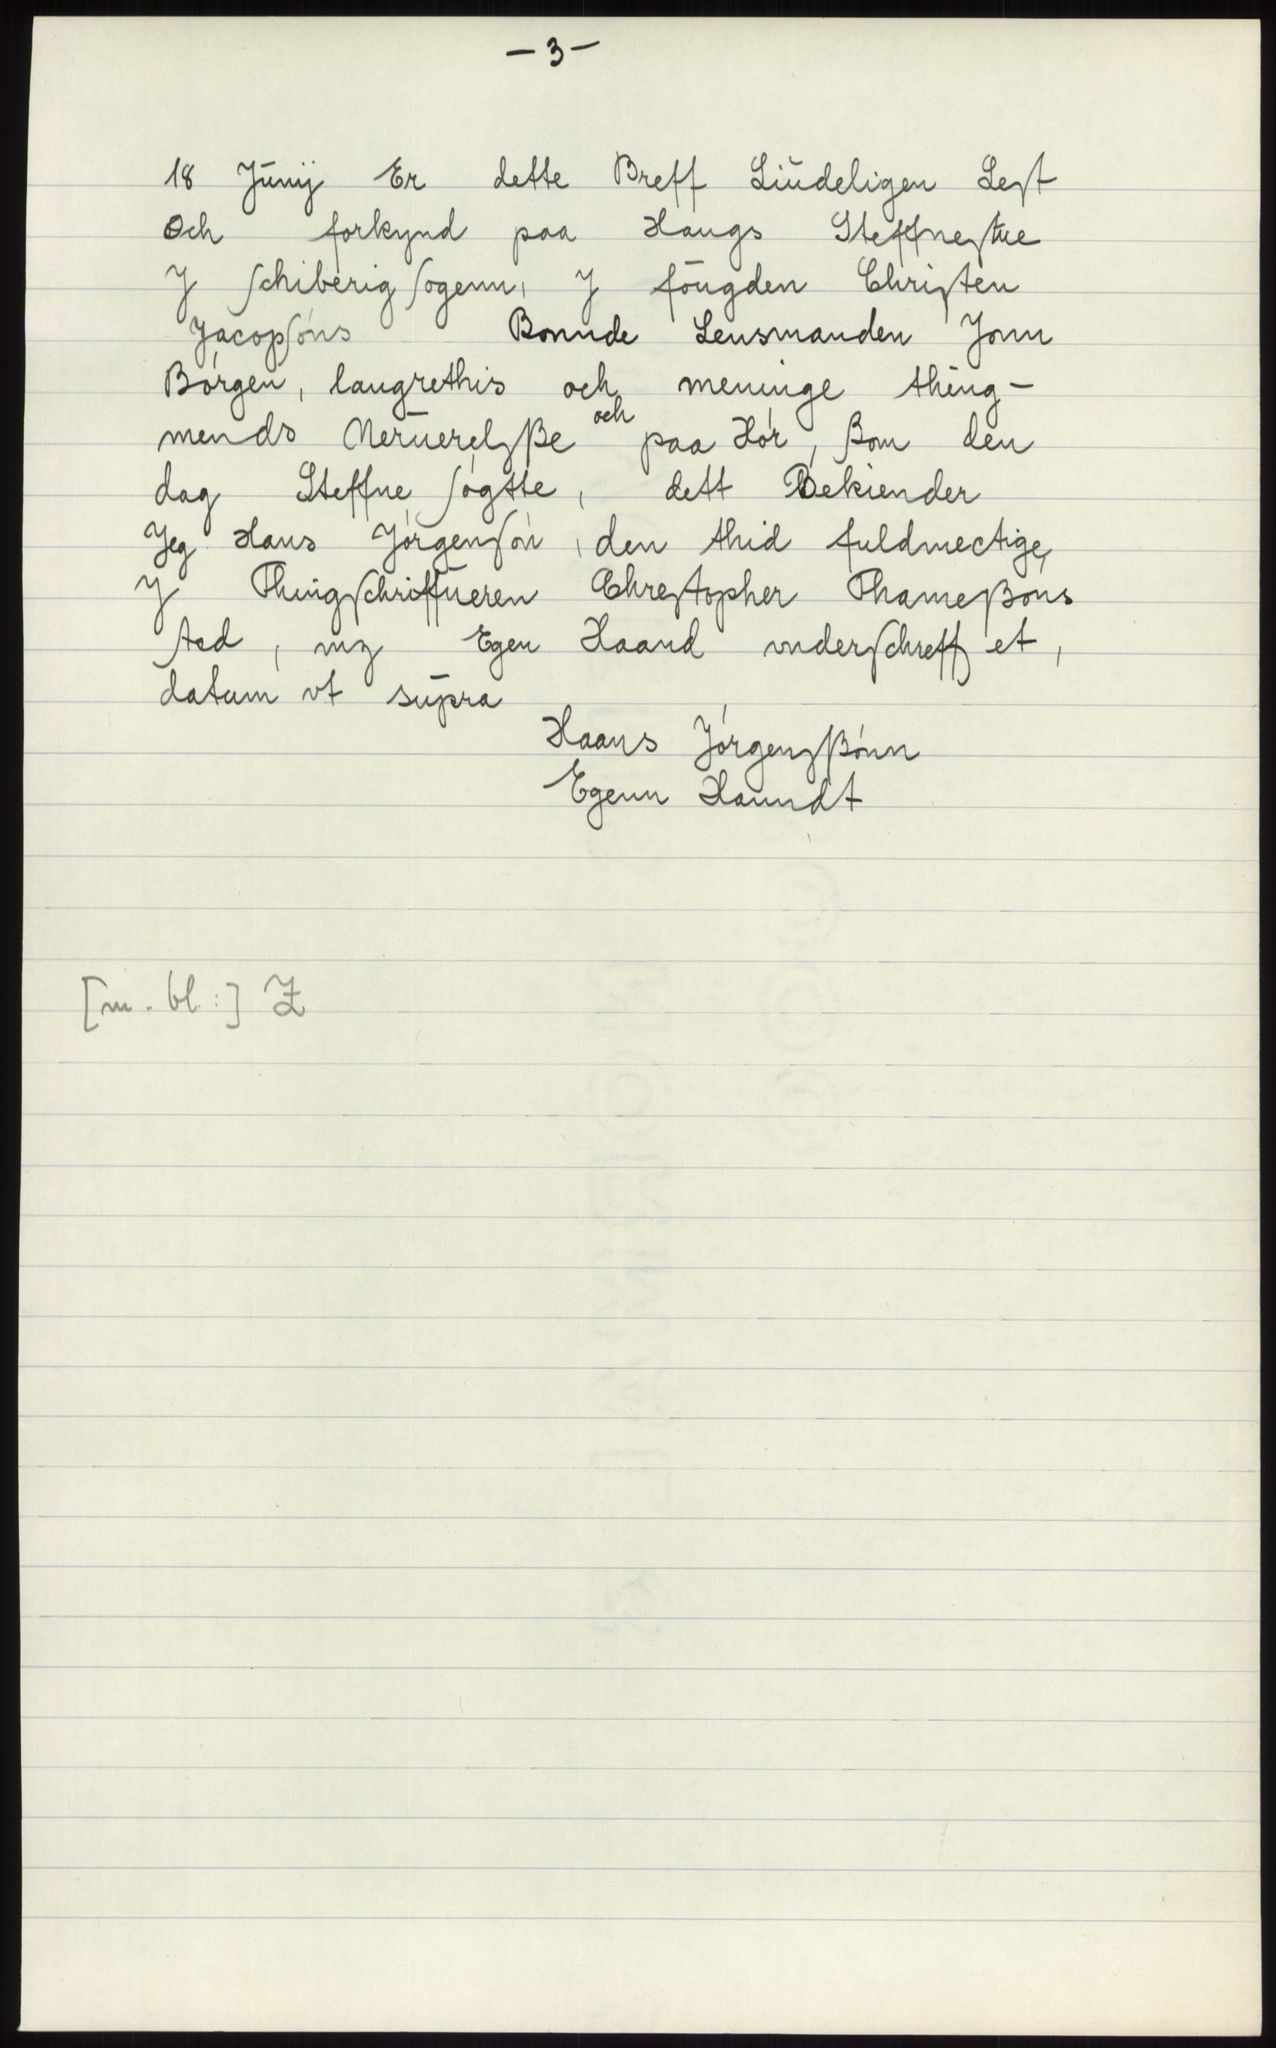 — 3 —
18 Jūnij Er dette Breff Liūdeligen Lest
Och forkynd paa Haugs Steffnestue
J schiberig sogenn, J fōugden Christen
Jacopsóns Bonnde Lensmanden Jonn
Bórgen, laugrethis och meninge thing-
mends Neruerelsße och paa Hór, ßom den
dag Steffne sógtte, dett Bekiender
Jeg Hans Jórgensón, den thid fuldmectige
J Thingschriffūeren Chrestopher Thameßóns
sted, mz Egen Haand vnderschreffet,
datum vt sūpra
Haans Jórgensßónn
Egenn Hanndt
[m. bl.:] Z